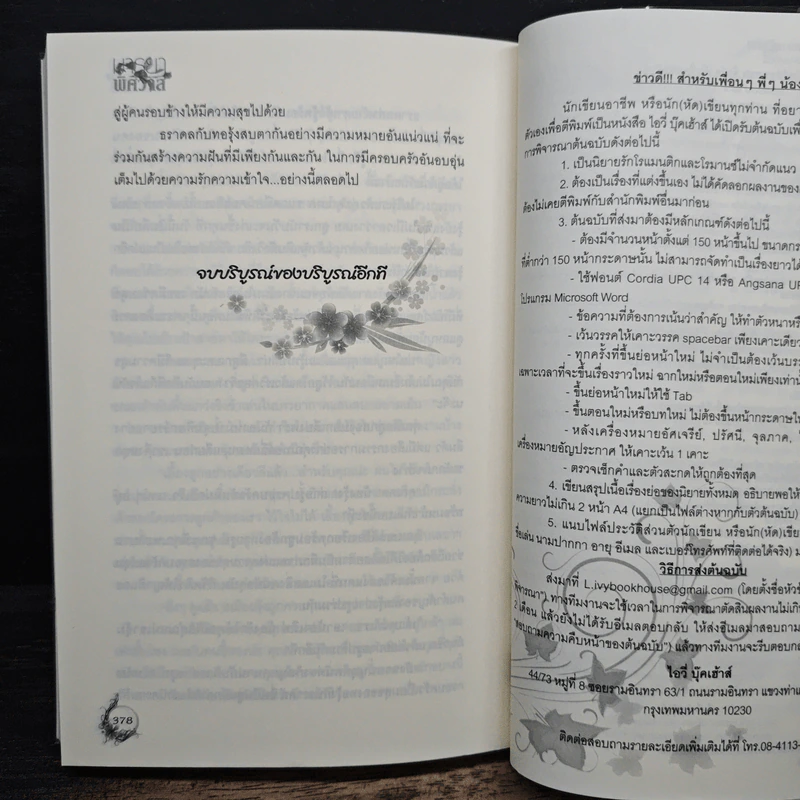 มารยา
พิศวาส
สู่ผู้คนรอบข้างให้มีความสุขไปด้วย
ธราดลกับทอรุ้งสบตากันอย่างมีความหมายอันแน่วแน่ ที่จะ
ร่วมกันสร้างความฝันที่มีเพียงกันและกัน ในการมีครอบครัวอันอบอุ่น
เต็มไปด้วยความรักความเข้าใจ...อย่างนี้ตลอดไป
จบบริบูรณ์ของบริบูรณ์อีกที
378
ข่าวดี!!! สำหรับเพื่อนๆ พี่ๆ น้อง
นักเขียนอาชีพ หรือนัก(หัด)เขียนทุกท่าน ที่อยา
ตัวเองเพื่อตีพิมพ์เป็นหนังสือ ไอวี่ บุ๊คเฮ้าส์ ได้เปิดรับต้นฉบับเพื่
การพิจารณาต้นฉบับดังต่อไปนี้
1. เป็นนิยายรักโรแมนติกและโรมานซ์ไม่จำกัดแนว
2. ต้องเป็นเรื่องที่แต่งขึ้นเอง ไม่ได้คัดลอกผลงานของ
ต้องไม่เคยตีพิมพ์กับสำนักพิมพ์อื่นมาก่อน
3. ต้นฉบับที่ส่งมาต้องมีหลักเกณฑ์ดังต่อไปนี้
- ต้องมีจำนวนหน้าตั้งแต่ 150 หน้าขึ้นไป ขนาดกร
ที่ต่ำกว่า 150 หน้ากระดาษนั้น ไม่สามารถจัดทำเป็นเรื่องยาวได้
- ใช้ฟอนต์ Cordia UPC 14 หรือ Angsana UP
โปรแกรม Microsoft Word
- ข้อความที่ต้องการเน้นว่าสำคัญ ให้ทำตัวหนาหรื
- เว้นวรรคให้เคาะวรรค spacebar เพียงเคาะเดียว
- ทุกครั้งที่ขึ้นย่อหน้าใหม่ ไม่จำเป็นต้องเว้นบรร
เฉพาะเวลาที่จะขึ้นเรื่องราวใหม่ ฉากใหม่หรือตอนใหม่เพียงเท่านั้
- ขึ้นย่อหน้าใหม่ให้ใช้ Tab
- ขึ้นตอนใหม่หรือบทใหม่ ไม่ต้องขึ้นหน้ากระดาษใ
- หลังเครื่องหมายอัศเจรีย์, ปรัศนี, จุลภาค,
เครื่องหมายอัญประกาศ ให้เคาะเว้น 1 เคาะ
- ตรวจเช็กคำและตัวสะกดให้ถูกต้องที่สุด
4. เขียนสรุปเนื้อเรื่องย่อของนิยายทั้งหมด อธิบายพอให้
ความยาวไม่เกิน 2 หน้า A4 (แยกเป็นไฟล์ต่างหากกับตัวต้นฉบับ)
5. แนบไฟล์ประวัติส่วนตัวนักเขียน หรือนัก(หัด)เขีย
ชื่อเล่น นามปากกา อายุ อีเมล และเบอร์โทรศัพท์ที่ติดต่อได้จริง) ม
วิธีการส่งต้นฉบับ
ส่งมาที่ L.ivybookhouse@gmail.com (โดยตั้งชื่อหัวข้
พิจารณา") ทางทีมงานจะใช้เวลาในการพิจารณาตัดสินผลงานไม่เกิ
2 เดือน แล้วยังไม่ได้รับอีเมลตอบกลับ ให้ส่งอีเมลมาสอบถาม
"สอบถามความคืบหน้าของต้นฉบับ") แล้วทางทีมงานจะรีบตอบก
ไอวี่ บุ๊คเฮ้าส์
44/73 หมู่ที่ 8 ซอยรามอินทรา 63/1 ถนนรามอินทรา แขวงท่าแ
กรุงเทพมหานคร 10230
ติดต่อสอบถามรายละเอียดเพิ่มเติมได้ที่ โทร.08-4113-